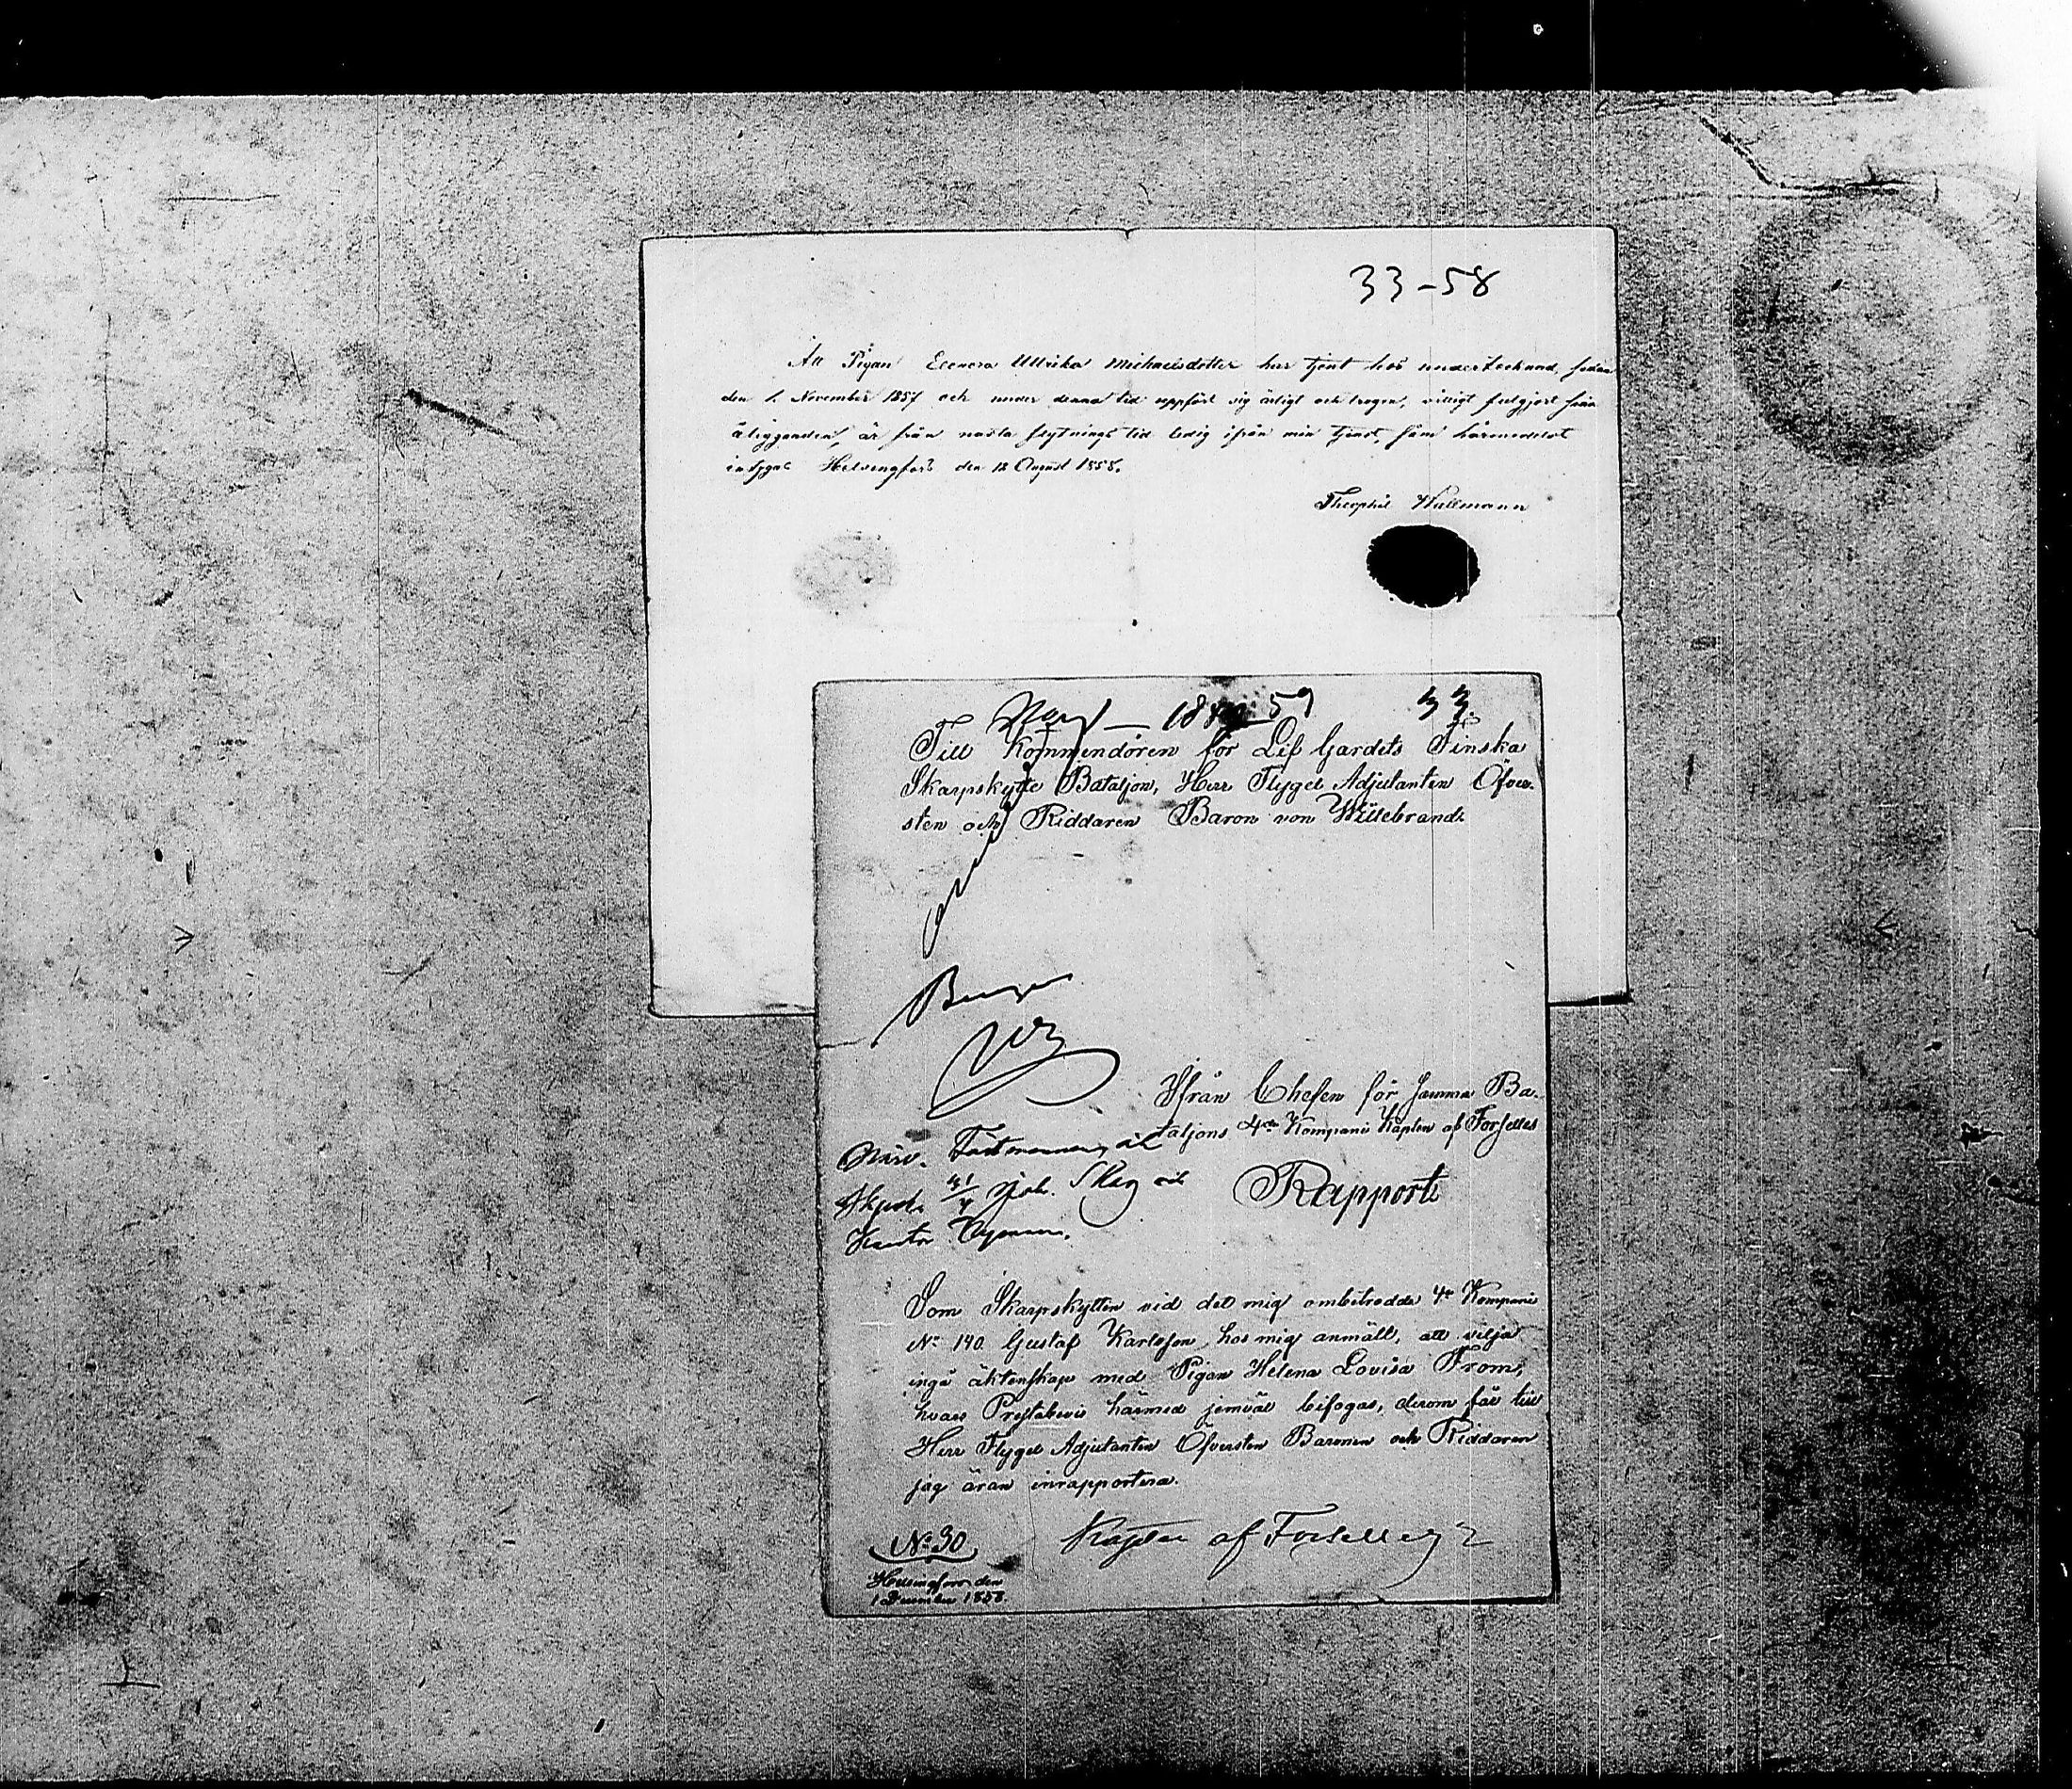 33-58
Att Pigan Eleonora Ullrika Michaelsdotter har tjent hos undertecknad, sedan
den 1. November 1857 och under denna tid uppfört sig ärligt och trogen, villigt fulgjort sina
åligganden, är från nästa flytnings tid ledig ifrån min tjenst, som härmedelst
intygas Helsingfors den 12 August 1858.
Theophil Wallmann
18 59 33.
Till Kommendören för Lif Gardets Finska
Skarpskytte Bataljon, Herr Flygel Adjutanten Öfver-
sten och Riddaren Baron von Willebrand.
Ifrån Chefen för samma Ba-
taljons 4de Kompani Kapten af Forselles
Rapport
Som Skarpskytten vid det mig ombetrodda 4de Kompani
No 140 Gustaf Karlsson hos mig anmält, att vilja
ingå äktenskap med Pigan Helena Lovisa From,
hvars Prestabevis härmed jemväl bifogas, derom får till
Herr Flygel Adjutanten Öfversten Baronen och Riddaren
jag äran inrapportera.
Kapten af Forselles
No 30
Helsingfors den
1 December 1858.